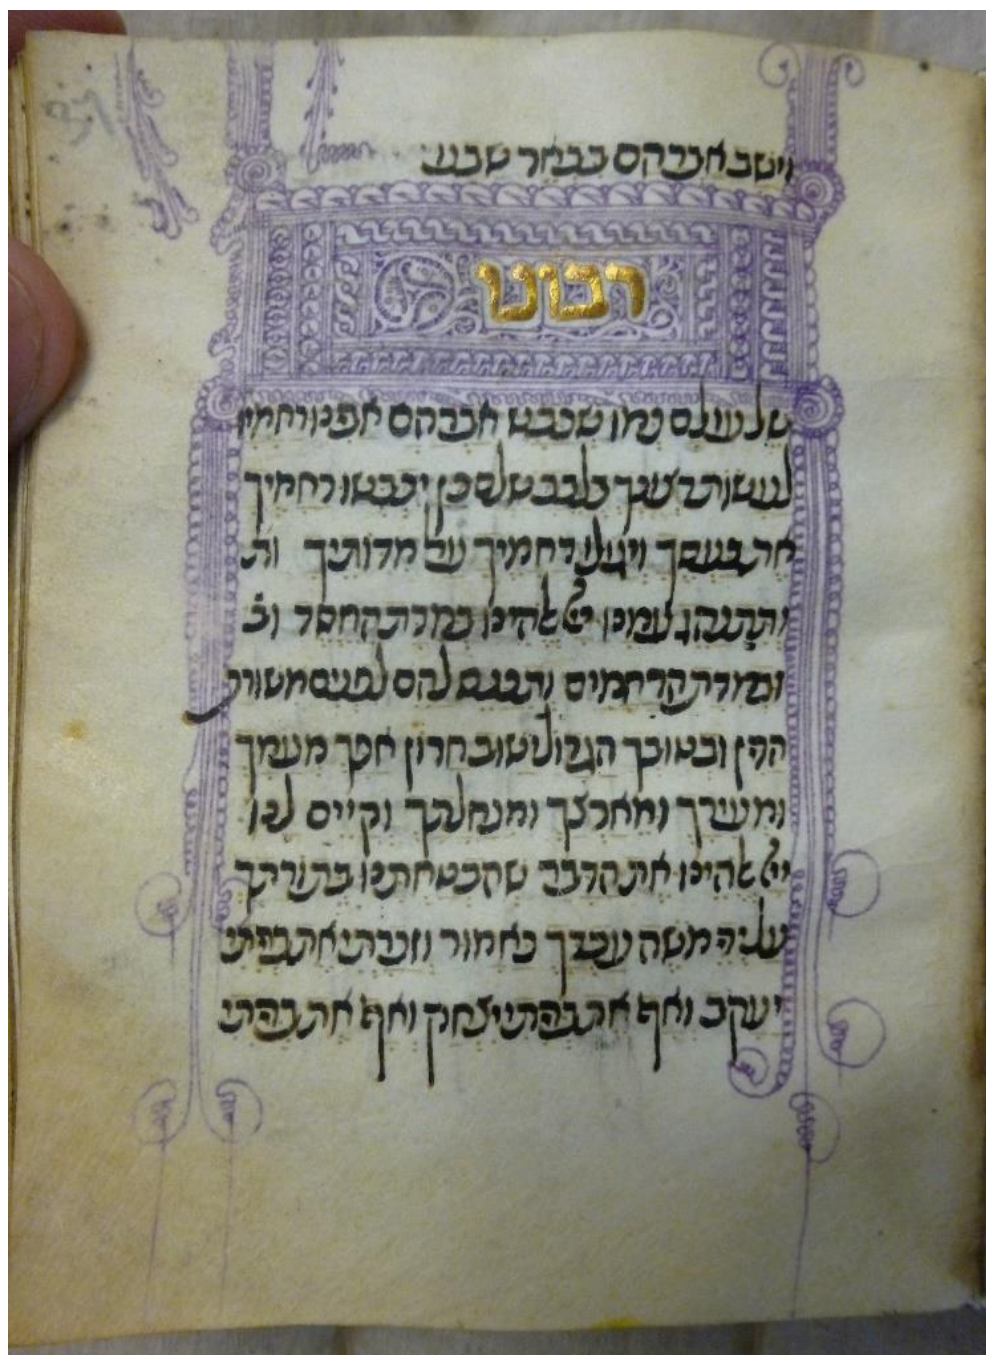 וישב אברהם בבאר שבע
רבונו
של עולם כמו שכבש אברהם אבינו רחמיו
לעשות רצונך בלבב שלם כן יכבשו רחמיך
את כעסך ויגולו רחמיך על מדותיך ות
ותתנהג עמנו יי׳ אלהינו במדת החסד וב
ובמדת הרחמים ותכנס להם לפנים משורת
הדין ובטובך הגדול ישוב חרון אפך מעמך
ומעירך ומארצך ומנחלתך וקיים לנו
יי׳ אלהינו את הדבר שהבטחתנו בתורתך
על יד משה עבדך כאמור וזכרתי את בריתי
יעקב ואף את בריתי יצחק ואף את בריתי